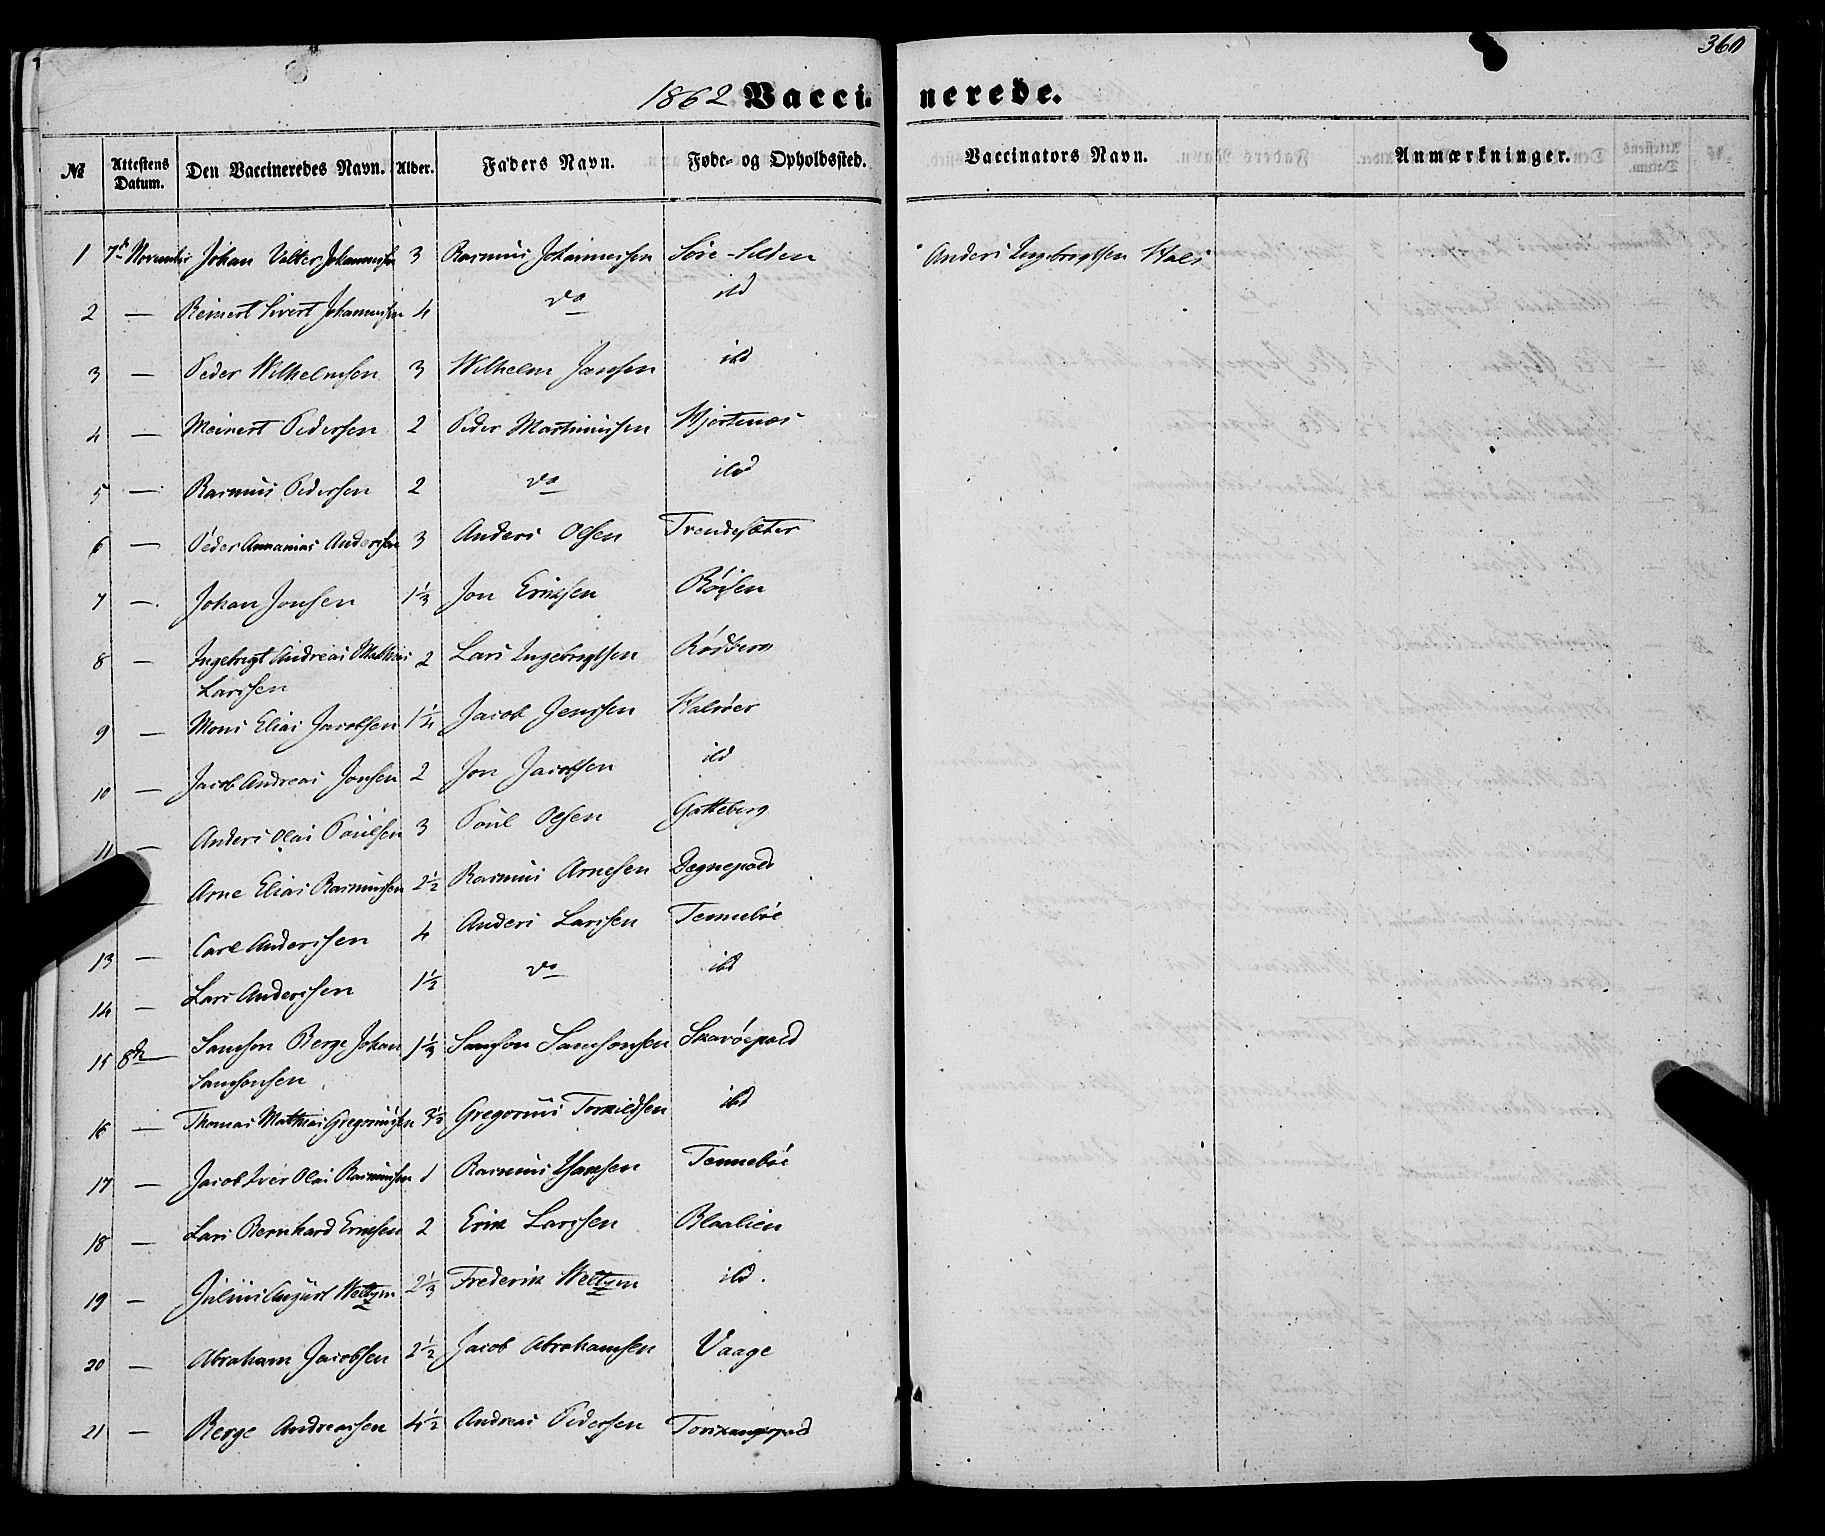 360
1862 Vacci- nerede.
№ Attestens Datum. Den Vaccineredes Navn. Alder. Faders Navn. Føde- og Opholdssted. Vaccinators Navn. Anmærkninger.
1 7de November Johan Valter Johannessen 3 Rasmus Johannessen Søre-Selden Anders Ingebrigtsen Hals
2 — Reinert Sivert Johannessen 4 do ibd
3 — Peder Wilhelmsen 3 Wilhelm Jansen ibd
4 — Meinert Pedersen 2 Peder Martinussen Hjertenæs
5 — Rasmus Pedersen 2 do ibd
6 — Peder Annanias Anderssen 3 Anders Olsen Trendesæter
7 — Johan Jonsen 1⅓ Jon Eriksen Røisen
8 — Ingebrigt Andreas Mathias 2 Lars Ingebrigtsen Rødberg
Larssen
9 — Mons Elias Jacobsen 1¼ Jacob Jenssen Halsøer
10 — Jacob Andreas Jonsen 2 Jon Jacobsen ibd
11 — Anders Olai Paulsen 3 Paul Olsen Gotteberg
— Arne Elias Rasmussen 2½ Rasmus Arnesen Degnepold
13 — Carl Anderssen 4 Anders Larssen Tennebøe
14 — Lars Anderssen 1½ do ibd
15 8de Samson Berge Johan 1⅓ Samson Samsonsen Skavøepold
Samsonsen
16 — Thomas Mathias Gregoriussen 3½ Gregorius Torkildsen ibd
17 — Jacob Iver Olai Rasmussen 1 Rasmus Hansen Tennebøe
18 — Lars Bernhard Eriksen 2 Erik Larssen Blaalien
19 — Julius August Weltzin 2⅓ Frederik Weltzin ibd.
20 — Abraham Jacobsen 2½ Jacob Abrahamsen Vaage
21 — Berge Andreassen 4½ Andreas Pedersen Torskangerpold